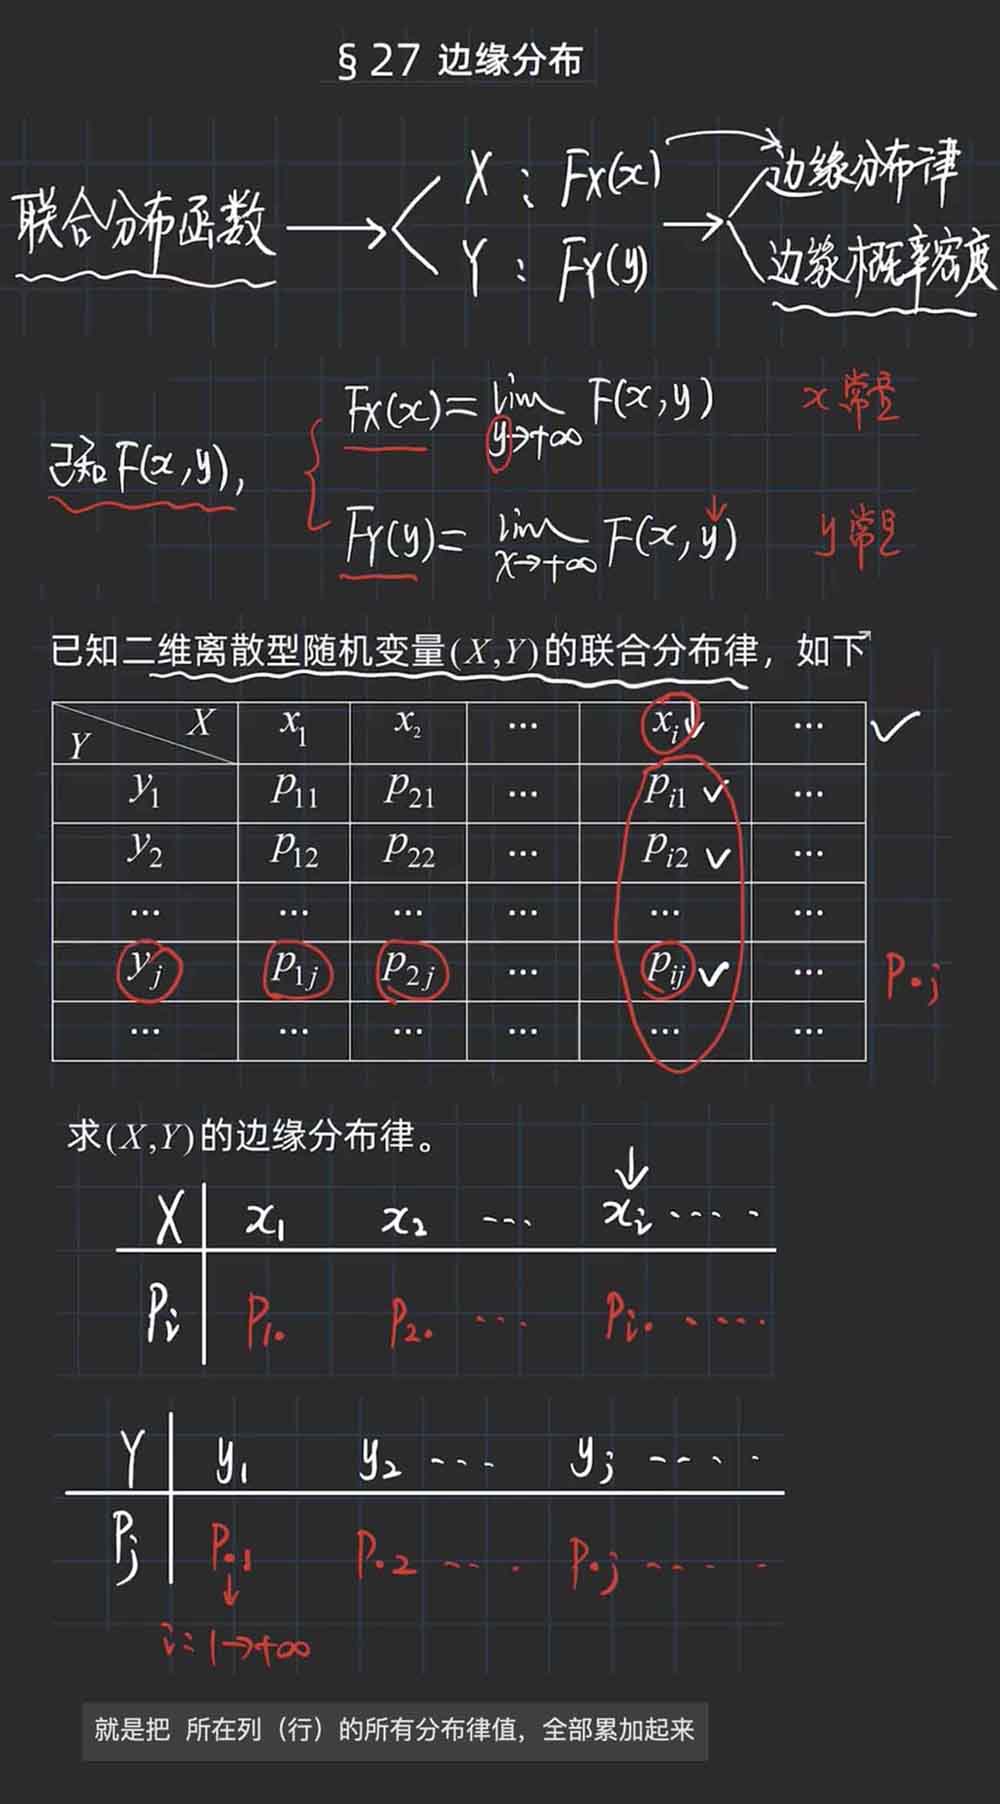 §27 边缘分布
联合分布函数 → X : Fx(x) → 边缘分布律
Y : FY(y) 边缘概率密度
已知F(x,y),
Fx(x)= lim F(x,y) x常量
y→+∞
FY(y)= lim F(x,y) y常量
x→+∞
已知二维离散型随机变量(X,Y)的联合分布律，如下
Y X x₁ x₂ … xᵢ …
y₁ p₁₁ p₂₁ … pᵢ₁ ✓ … ✓
y₂ p₁₂ p₂₂ … pᵢ₂ ✓ …
… … … … … …
yⱼ p₁ⱼ p₂ⱼ … pᵢⱼ ✓ … P·j
… … … … … …
求(X,Y)的边缘分布律。
X x₁ x₂ … xᵢ ….
Pᵢ P₁. P₂. … Pᵢ. ….
Y y₁ y₂ … yⱼ ….
Pj P.₁ P.₂ …. P.j ….
i:1→+∞
就是把 所在列（行）的所有分布律值，全部累加起来